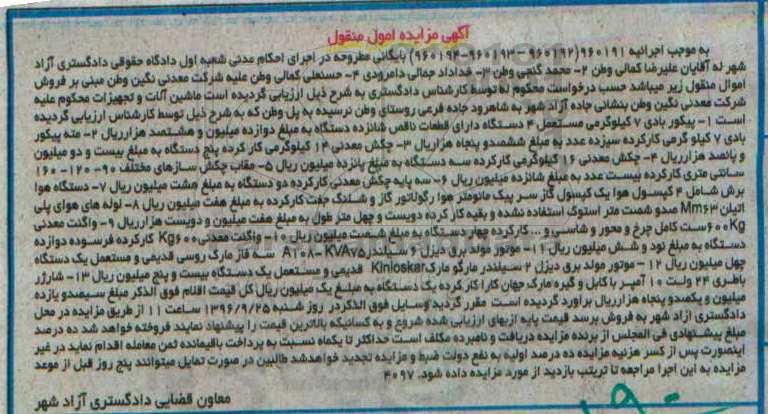 آگهی مزایده اموال منقول
به موجب اجرائیه ۹۶۰۱۹۱(۹۶۰۱۹۲-۹۶۰۱۹۳-۹۶۰۱۹۴) بایگانی مطروحه در اجرای احکام مدنی شعبه اول دادگاه حقوقی دادگستری آزاد
شهر له آقایان علیرضا کمالی وطن ۲- محمد گنجی وطن ۳- خداداد جمالی دامرودی ۴- حسنعلی کمالی وطن علیه شرکت معدنی نگین وطن مبنی بر فروش
اموال منقول زیر میباشد حسب درخواست محکوم له توسط کارشناس دادگستری به شرح ذیل ارزیابی گردیده است ماشین آلات و تجهیزات محکوم علیه
شرکت معدنی نگین وطن بنشانی جاده آزاد شهر به شاهرود جاده فرعی روستای وطن نرسیده به پل وطن که به شرح ذیل توسط کارشناس ارزیابی گردیده
است ۱- پیکور بادی ۷ کیلوگرمی مستعمل ۴ دستگاه دارای قطعات ناقص شانزده دستگاه به مبلغ دوازده میلیون و هشتصد هزارریال ۲- مته پیکور
بادی ۷ کیلو گرمی کارکرده سیزده عدد به مبلغ ششصدو پنجاه هزارریال ۳- چکش معدنی ۱۴ کیلوگرمی کار کرده پنج دستگاه به مبلغ بیست و دو میلیون
و پانصد هزارریال ۴- چکش معدنی ۱۶ کیلوگرمی کارکرده سه دستگاه به مبلغ پانزده میلیون ریال ۵- مقاب چکش سازهای مختلف ۹۰-۱۲۰-۱۶۰
سانتی متری کارکرده بیست عدد به مبلغ شانزده میلیون ریال ۶- سه پایه چکش معدنی کارکرده دو دستگاه به مبلغ هشت میلیون ریال ۷- دستگاه هوا
برش شامل ۴ کپسول هوا یک کپسول گاز سر پیک مانومتر هوا رگولاتور گاز و شلنگ جفت کارکرده به مبلغ هفت میلیون ریال ۸- لوله های هوای پلی
اتیلن Mm۶۳ صدو شصت متر استوک استفاده نشده و بقیه کار کرده دویست و چهل متر طول به مبلغ هفت میلیون و دویست هزارریال ۹- واگنت معدنی
۶۰۰Kg ست کامل چرخ و محور و شاسی و ... کارکرده چهار دستگاه به مبلغ شصت میلیون ریال ۱۰- واگنت معدنی ۶۰۰Kg کارکرده فرسوده دوازده
دستگاه به مبلغ نود و شش میلیون ریال ۱۱- موتور مولد برق دیزل ۶ سیلندر A۱۰۸-KVA۷۵ سه فاز مارک روسی قدیمی و مستعمل یک دستگاه
چهل میلیون ریال ۱۲- موتور مولد برق دیزل ۲ سیلندر مارگو مارک Kinloskar قدیمی و مستعمل یک دستگاه بیست و پنج میلیون ریال ۱۳- شارژر
باطری ۲۴ ولت ۱۰ آمپر با کابل و گیره مارک جهان کارا کار کرده یک دستگاه به مبلغ یک میلیون ریال کل قیمت اقلام فوق الذکر مبلغ سیصدو یازده
میلیون و یکصدو پنجاه هزارریال براورد گردیده است مقرر گردید وسایل فوق الذکردر روز شنبه ۱۳۹۶/۹/۲۵ ساعت ۱۱ از طریق مزایده در محل
دادگستری آزاد شهر به فروش برسد قیمت پایه ازبهای ارزیابی شده شروع و به کسانیکه بالاترین قیمت را پیشنهاد نمایند فروخته خواهد شد ده درصد
مبلغ پیشنهادی فی المجلس از برنده مزایده دریافت و نامبرده مکلف است حداکثر تا یکماه نسبت به پرداخت باقیمانده ثمن معامله اقدام نماید در غیر
اینصورت پس از کسر هزینه مزایده ده درصد اولیه به نفع دولت ضبط و مزایده تجدید خواهدشد طالبین در صورت تمایل میتوانند پنج روز قبل از موعد
مزایده به این اجرا مراجعه تا ترتیب بازدید از مورد مزایده داده شود. ۴۰۹۷
معاون قضایی دادگستری آزاد شهر